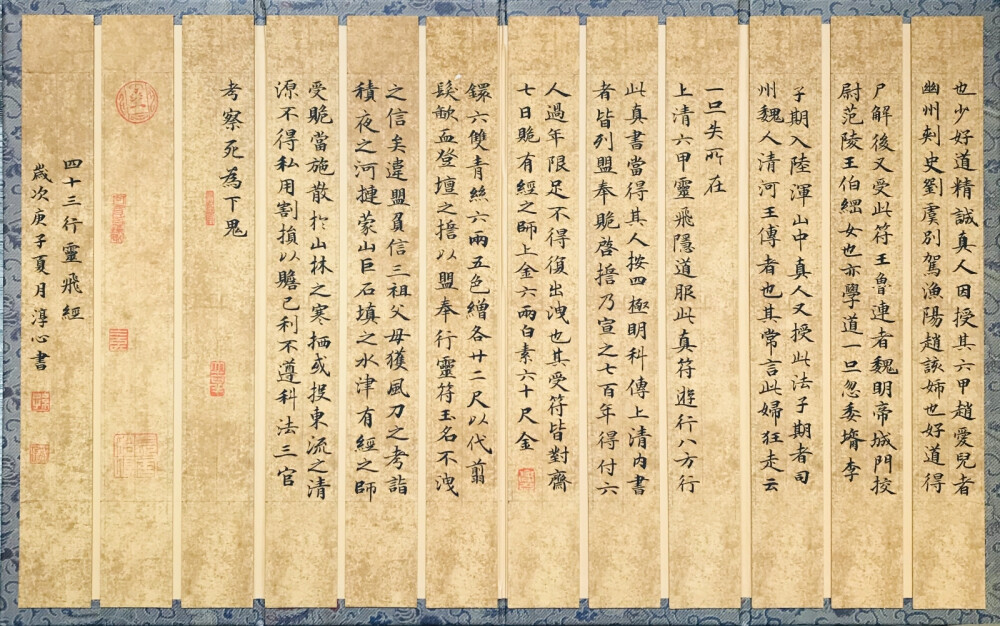 也少好道精誠真人因授其六甲趙愛兒者
幽州刾史劉虞别駕漁陽趙該姊也好道得
尸解後又受此符王魯連者魏明帝城門挍
尉范陵王伯綱女也亦學道一旦忽委壻李
子期入陸渾山中真人又授此法子期者司
州魏人清河王傳者也其常言此婦狂走云
一旦失所在
上清六甲靈飛隱道服此真符遊行八方行
此真書當得其人按四極明科傳上清内書
者皆列盟奉貺啓擔乃宣之七百年得付六
人過年限足不得復出洩也其受符皆對齋
七日貺有經之師上金六兩白素六十尺金
鐶六雙青絲六兩五色繒各廿二尺以代翦
髮歃血登壇之擔以盟奉行靈符玉名不洩
之信矣違盟負信三祖父母獲風刀之考詣
積夜之河揵蒙山巨石填之水津有經之師
受貺當施散於山林之寒栖或投東流之清
源不得私用割損以贍己利不遵科法三官
考察死為下鬼
四十三行靈飛經
歲次庚子夏月淳心書